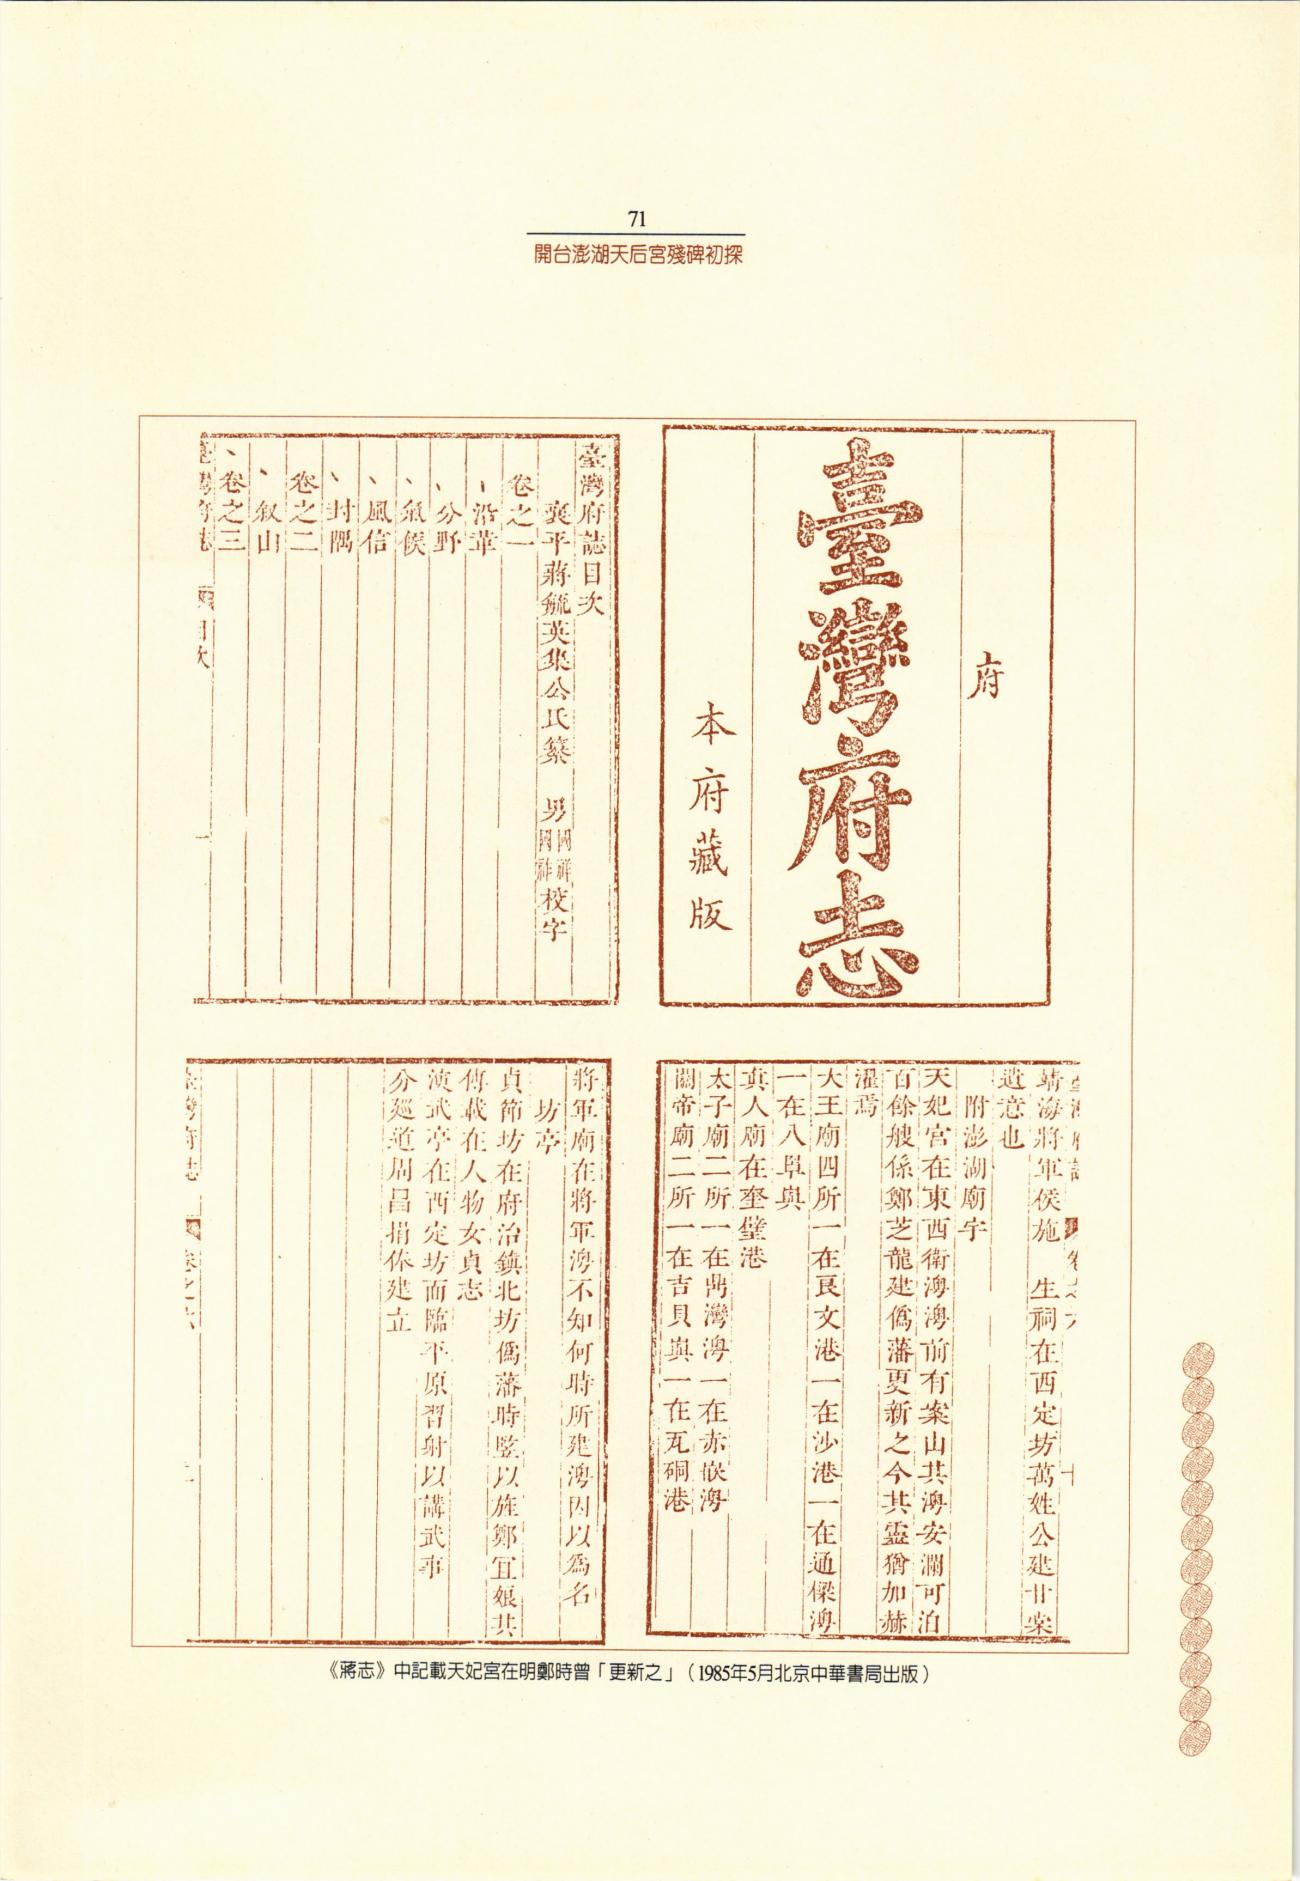 71
開台澎湖天后宮殘碑初探
府
臺灣府志
本府藏版
臺灣府誌目次
襄平蔣毓英集公氏纂 男國祥國祚校字
卷之一
、沿革
、分野
、氣候
、風信
、封隅
卷之二
、叙山
、卷之三
臺灣府誌 目次 一
臺灣府誌 卷之六 十
靖海將軍侯施 生祠在西定坊萬姓公建甘棠
遺意也
附澎湖廟宇
天妃宮在東西衛澚澚前有案山其澚安瀾可泊
百餘艘係鄭芝龍建僞藩更新之今其靈猶加赫
濯焉
大王廟四所一在良文港一在沙港一在通樑澚
一在八罩與
真人廟在奎璧港
太子廟二所一在鼎灣澚一在赤嵌澚
關帝廟二所一在吉貝與一在瓦硐港
將軍廟在將軍澚不知何時所建澚因以為名
坊亭
貞節坊在府治鎮北坊僞藩時竪以旌鄭宜娘其
傳載在人物女貞志
演武亭在西定坊而臨平原習射以講武事
分廵道周昌捐俸建立
臺灣府誌 卷之六
《蔣志》中記載天妃宮在明鄭時曾「更新之」（1985年5月北京中華書局出版）